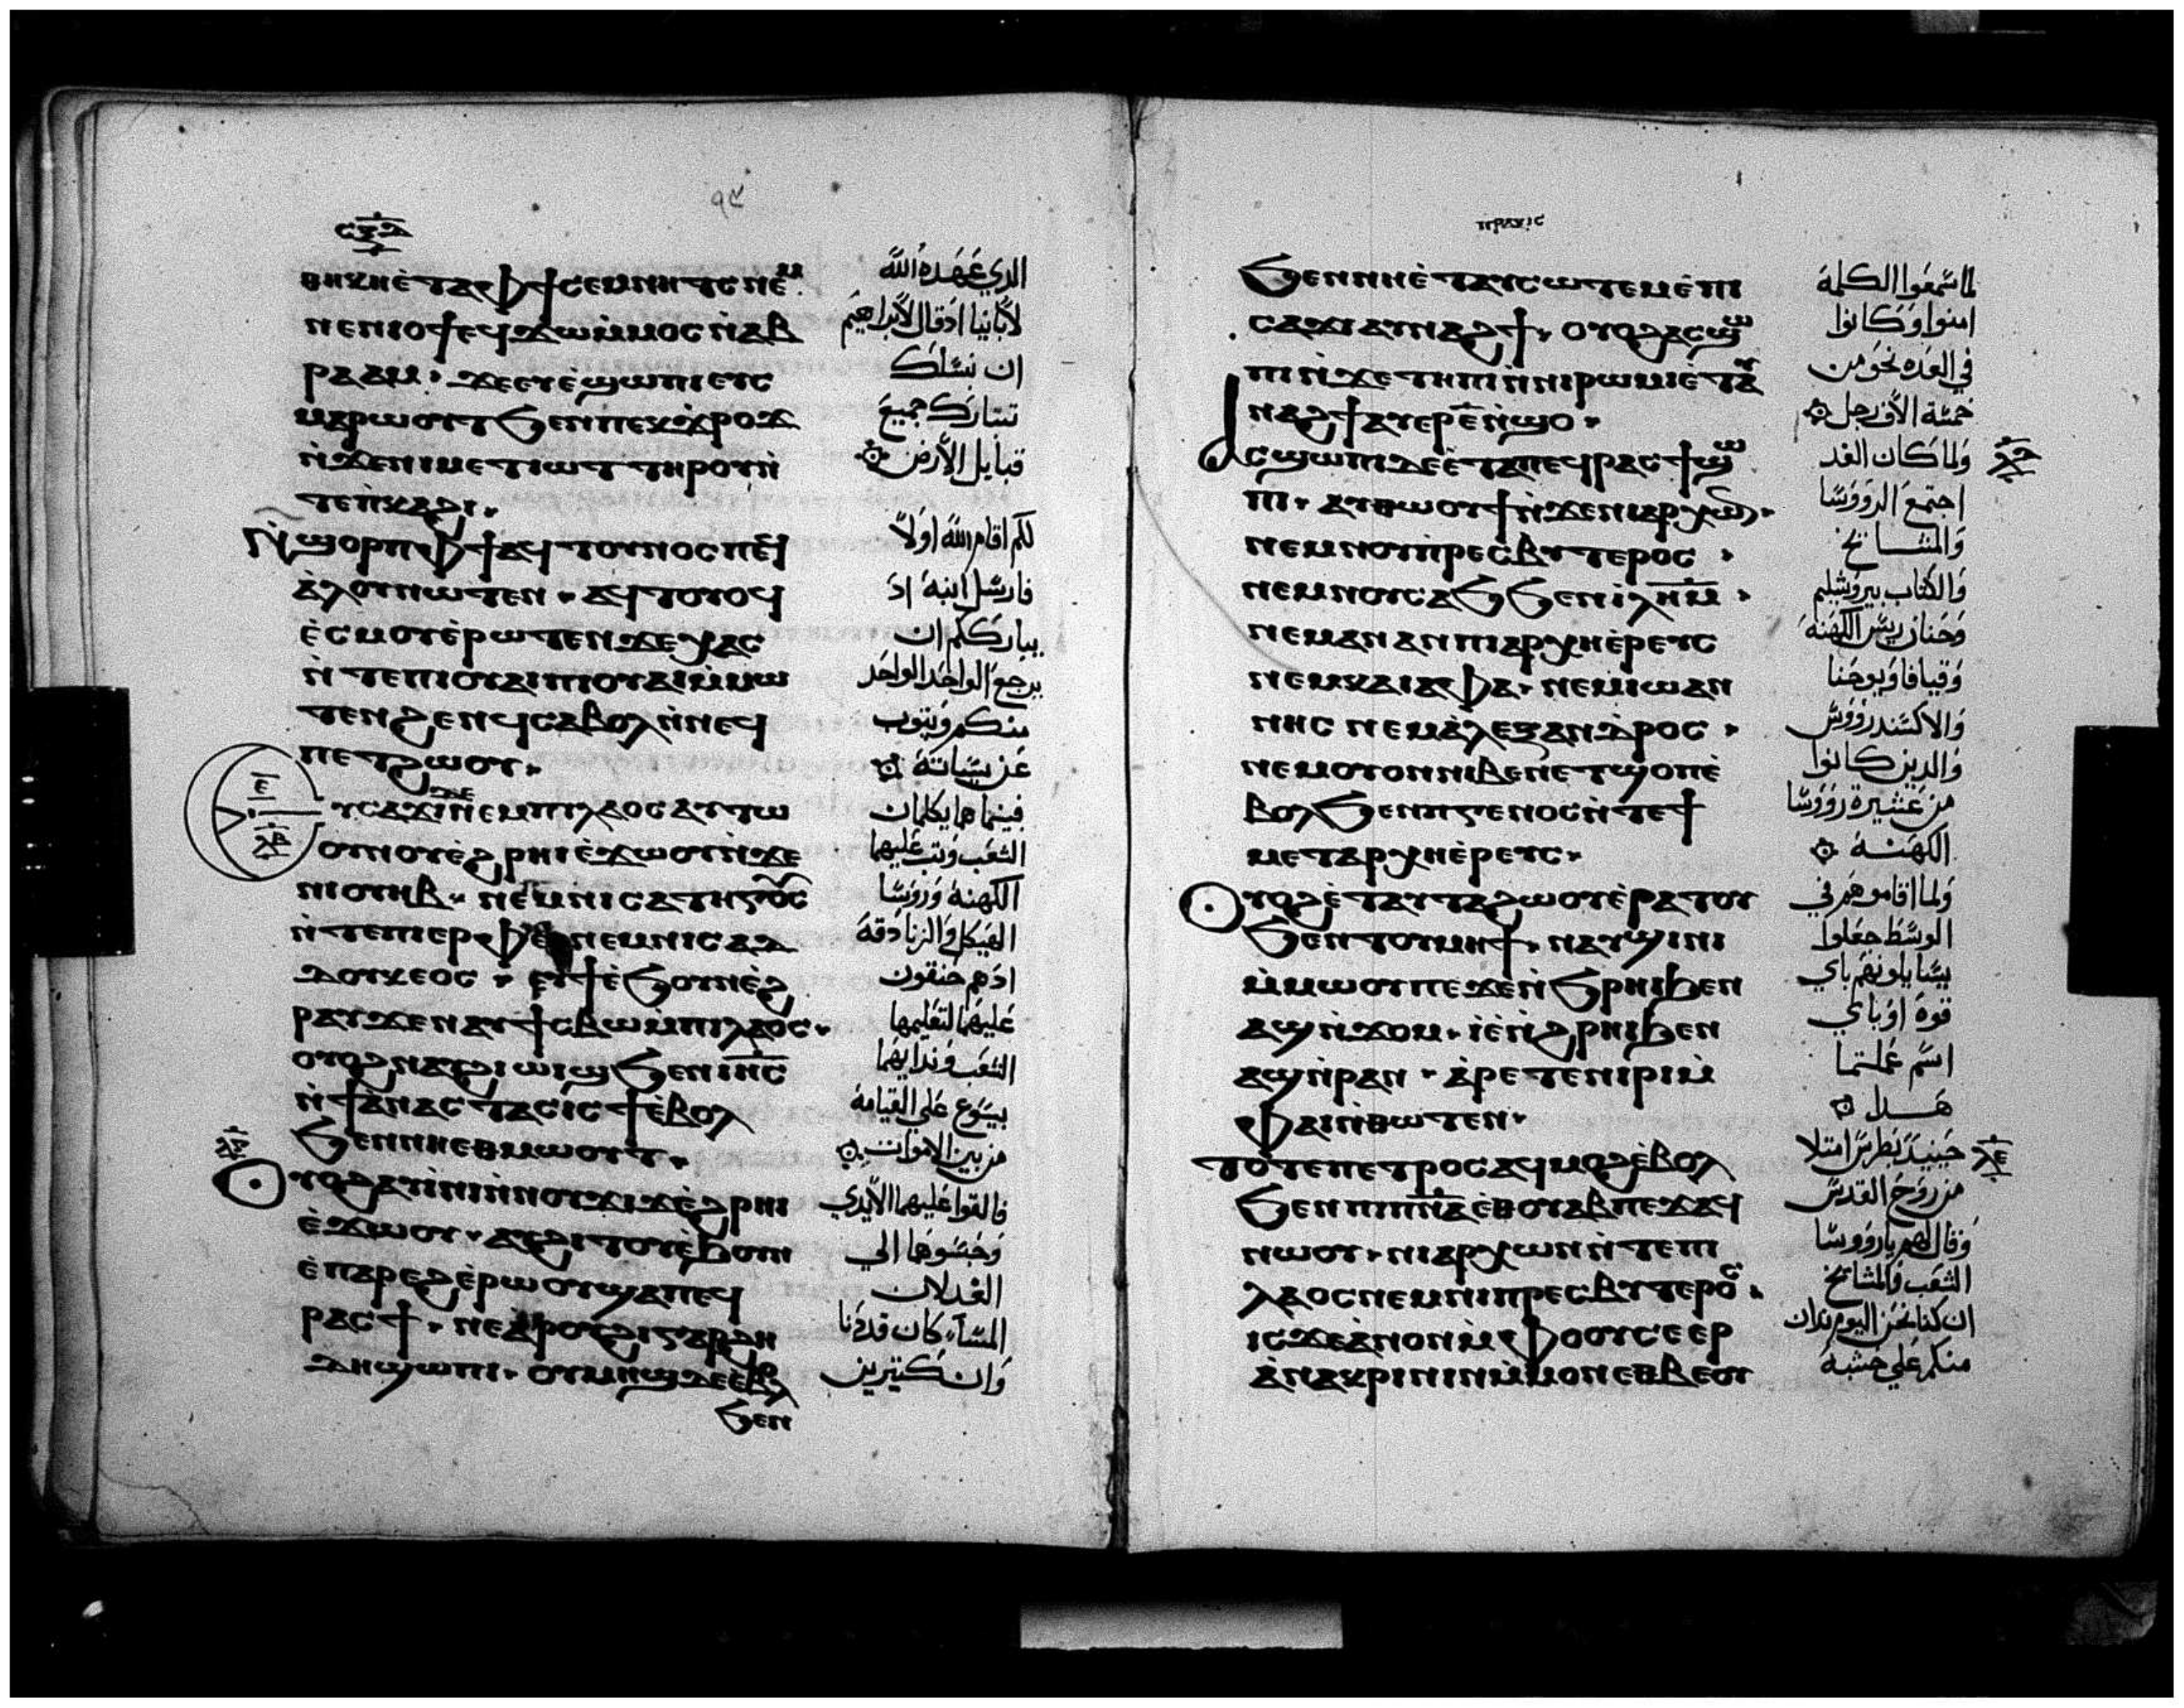 ⲥⲝⲇ
٩٤
ⲑⲏⲕⲏⲉ̀ⲧⲁⲫϯⲥⲉⲙⲛⲏⲧⲥ ⲛⲉⲙ
ⲛⲉⲛⲓⲟϯⲉϥϫⲱⲙ̀ⲙⲟⲥ ⲛ̀ⲁⲃ
ⲣⲁⲁⲙ· ϫⲉⲉⲩⲉ̀ϣⲱⲡⲓⲉⲩⲥ
ⲙⲁⲣⲱⲟⲩⲧϧⲉⲛⲡⲉⲕϫⲣⲟϫ
ⲛ̀ϫⲉⲛⲓⲙⲉⲧⲓⲱⲧ ⲧⲏⲣⲟⲩⲛ̀
ⲧⲉⲡ̀ⲕⲁϩⲓ·
ⲛ̀ϣⲟⲣⲡⲫϯⲁϥ ⲧⲟⲩⲛⲟⲥ ⲡⲉϥ
ⲁ̀ⲗⲟⲩⲛⲱⲧⲉⲛ· ⲁϥⲧⲟⲩⲟϥ
ⲉ̀ⲥⲙⲟⲩⲉ̀ⲣⲱⲧⲉⲛϫⲉⲭⲁⲥ
ⲛ̀ⲧⲉⲡⲓⲟⲩⲁⲓⲡⲓⲟⲩⲁⲓⲙ̀ⲙⲱ
ⲧⲉⲛϩⲉⲛϥⲥⲁⲃⲟⲗⲛ̀ⲛⲉϥ
ⲡⲉⲧϩⲱⲟⲩ·
ⲉ̅
ⲗⲃ
ⲩⲥⲁϫⲓⲇⲉⲛⲉⲙⲡⲓⲗⲁⲟⲥ ⲁⲩⲧⲱ
ⲟⲩⲛⲟⲩⲉ̀ϩⲣⲏⲓⲉ̀ϫⲱⲟⲩⲛ̀ϫⲉ
ⲛⲓⲟⲩⲏⲃ· ⲛⲉⲙⲛⲓⲥⲁⲧⲏⲅⲟⲥ
ⲛ̀ⲧⲉⲡⲓⲉⲣⲫⲉⲓ ⲛⲉⲙⲛⲓⲥⲁⲇ
ⲇⲟⲩⲕⲉⲟⲥ· ⲉⲩϯⲉ̀ϧⲟⲩⲛⲉ̀ϩ
ⲣⲁⲩϫⲉⲛⲁⲩϯⲥⲃⲱⲙ̀ⲡⲓⲗⲁⲟⲥ·
ⲟⲩⲟϩⲛⲁⲩϩⲓⲱⲓϣϧⲉⲛⲓⲏⲥ
ⲛ̀ϯⲁⲛⲁⲥⲧⲁⲥⲓⲥ ϯⲉ̀ⲃⲟⲗ
ϧⲉⲛⲛⲏⲉⲑⲙⲱⲟⲩⲧ·
ⲗⲅ
ⲟⲩⲟϩⲁⲩⲓ̀ⲛⲓⲛ̀ⲛⲟⲩϫⲓϫⲉ̀ϩⲣⲏⲓ
ⲉ̀ϫⲱⲟⲩ· ⲁⲩϩⲓⲧⲟⲩⲉ̀ϧⲟⲩⲛ
ⲉ̀ⲡⲁⲣⲉϩⲉ̀ⲣⲱⲟⲩϣⲁⲡⲉϥ
ⲣⲁⲥϯ· ⲛⲉⲁ̀ⲣⲟⲩϩⲓⲅⲁⲣϩⲏ
ⲇⲏϣⲱⲡⲓ· ⲟⲩⲙⲏϣⲇⲉⲉⲃⲟⲗ
ϧⲉⲛ
الدي عهده الله
لابايئنا اد قال لابراهيم
ان نسلك
تتبارك جميع
قبايل الارض
لكم اقام الله اولا
فارسل ابنه اد
يبارككم ان
يرجع الواحد الواحد
منكم ويتوب
عن سياته
فبينما هما يكلمان
الشعب وتب عليهما
الكهنة وروسا
الهيكل والزنادقة
ادهم حنقون
عليهما لتعليمها
الشعب وندايهما
بيسوع علي القيامة
من بين الاموات
فالقوا عليهما الايدي
وحبسوهما الي
الغد لان
المساء كان قد دنا
وان كتيرين
ⲡⲣⲁⲝⲓⲥ
ϧⲉⲛⲛⲏⲉ̀ⲧⲁⲩⲥⲱⲧⲉⲙⲉ̀ⲡⲓ
ⲥⲁϫⲓⲁⲩⲛⲁϩϯ· ⲟⲩⲟϩⲁⲥϣⲱ
ⲡⲓⲛ̀ϫⲉⲧⲏⲡⲓⲛ̀ⲛⲓⲣⲱⲙⲓⲉ̀ⲧⲁⲩ
ⲛⲁϩϯⲁⲩⲉⲣⲉ̅ⲛ̀ϣⲟ·
ⲁⲥϣⲱⲡⲓⲇⲉⲉ̀ⲧⲁⲡⲉϥⲣⲁⲥϯϣⲱ
ⲡⲓ· ⲁⲩⲑⲱⲟⲩϯⲛ̀ϫⲉⲛⲓⲁⲣⲭⲱⲛ·
ⲛⲉⲙⲛⲟⲩⲡ̀ⲣⲉⲥⲃⲩⲧⲉⲣⲟⲥ·
ⲛⲉⲙⲛⲟⲩⲥⲁϧϧⲉⲛⲓ̀ⲗⲏⲙ·
ⲛⲉⲙⲁⲛⲁⲛⲡⲓⲁⲣⲭⲏⲉ̀ⲣⲉⲩⲥ
ⲛⲉⲙⲕⲁⲓⲁⲫⲁ· ⲛⲉⲙⲓⲱⲁⲛ
ⲛⲏⲥ ⲛⲉⲙⲁ̀ⲗⲉⲝⲁⲛⲇⲣⲟⲥ·
ⲛⲉⲙⲟⲩⲟⲛⲛⲓⲃⲉⲛⲉⲧϣⲟⲡⲉ̀
ⲃⲟⲗϧⲉⲛⲡⲅⲉⲛⲟⲥⲛ̀ⲧⲉϯ
ⲙⲉⲧⲁⲣⲭⲏⲉ̀ⲣⲉⲩⲥ·
ⲟⲩⲟϩⲉ̀ⲧⲁⲩⲧⲁϩⲱⲟⲩⲉ̀ⲣⲁⲧⲟⲩ
ϧⲉⲛⲧⲟⲩⲙⲏϯ· ⲛⲁⲩϣⲓⲛⲓ
ⲙ̀ⲙⲱⲟⲩⲡⲉϫⲉⲛ̀ϧⲣⲏⲓϧⲉⲛ
ⲁϣⲛ̀ϫⲟⲙ· ⲓⲉ̀ⲛ̀ϩⲣⲏⲓϧⲉⲛ
ⲁϣⲛ̀ⲣⲁⲛ· ⲁ̀ⲣⲉⲧⲉⲛⲓⲣⲓⲙ̀
ⲫⲁⲓⲛ̀ⲑⲱⲧⲉⲛ·
ⲧⲟ̀ⲧⲉⲡⲉⲧⲣⲟⲥⲁϥⲙⲟϩⲉ̀ⲃⲟⲗ
ϧⲉⲛⲡⲓⲡⲛⲁⲉ̀ⲑⲟⲩⲁⲃⲡⲉϫⲁϥ
ⲛⲱⲟⲩ· ⲛⲓⲁⲣⲭⲱⲛⲛ̀ⲧⲉⲡⲓ
ⲗⲁⲟⲥⲛⲉⲙⲛⲓⲡⲣⲉⲥⲃⲩⲧⲉⲣⲟⲥ·
ⲓⲥϫⲉⲁ̀ⲛⲟⲛⲙ̀ⲫⲟⲟⲩⲥⲉⲉⲣ
ⲁ̀ⲛⲁⲕⲣⲓⲛⲓⲛⲙ̀ⲙⲟⲛⲉⲑⲃⲉⲟⲩ
لما سمعوا الكلمة
امنوا وكانوا
في العده نحو من
خمسة الاف رجل
ولما كان الغد
ⲗⲇ
اجتمع الرووسا
والمشايخ
والكتاب بيروشليم
وحنان ريس الكهنه
وقيافا ويوحنا
والاكسندرووس
والدين كانوا
من عشيرة رووسا
الكهنة
ولما اقاموهم في
الوسط جعلوا
يسايلونهم باي
قوة او باي
اسم عملتما
هدا
حينيد بطرس امتلا
ⲗⲉ
من روح القدس
وقال لهم يا رووسا
الشعب والمشايخ
ان كنا نحن اليوم ندان
منكم علي حسنة